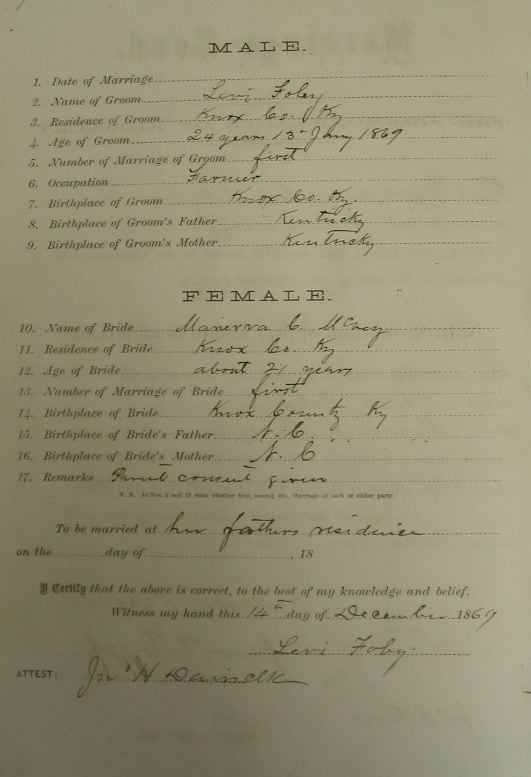 MALE.
1. Date of Marriage
2. Name of Groom Levi Foley
3. Residence of Groom Knox Co. Ky
4. Age of Groom 24 years 13th Jany 1869
5. Number of Marriage of Groom first
6. Occupation Farmer
7. Birthplace of Groom Knox Co. Ky.
8. Birthplace of Groom's Father Kentucky
9. Birthplace of Groom's Mother Kentucky
FEMALE.
10. Name of Bride Manerva C.
11. Residence of Bride Knox Co. Ky
12. Age of Bride about 21 years
13. Number of Marriage of Bride first
14. Birthplace of Bride Knox County Ky
15. Birthplace of Bride's Father N. C.
16. Birthplace of Bride's Mother N. C
17. Remarks Parent consent given
N. B. At Nos 5 and 13 state whether first, second, etc., Marriage of each or either party.
To be married at her fathers residence
on the day of , 18
I Certify that the above is correct, to the best of my knowledge and belief.
Witness my hand this 14th day of December 1869
Levi Foley
ATTEST: Jno H